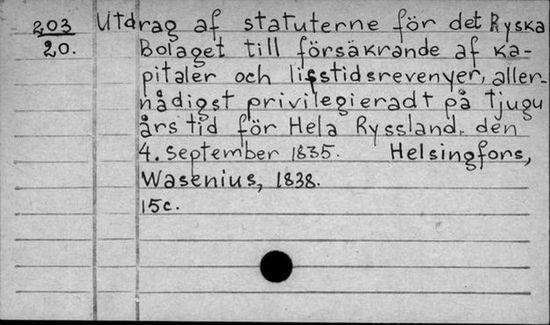 203 Utdrag af statuterne för det Ryska
20. Bolaget till försäkrande af ka-
pitaler och lifstidsrevenyer, aller-
nådigst privilegieradt på tjugu
års tid för Hela Ryssland, den
4. September 1835. Helsingfors,
Wasenius, 1838.
15c.